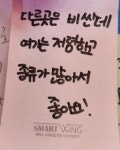 다른곳은 비싼데
여기는 저렴하고
종류가 많아서
좋아요!
SMART